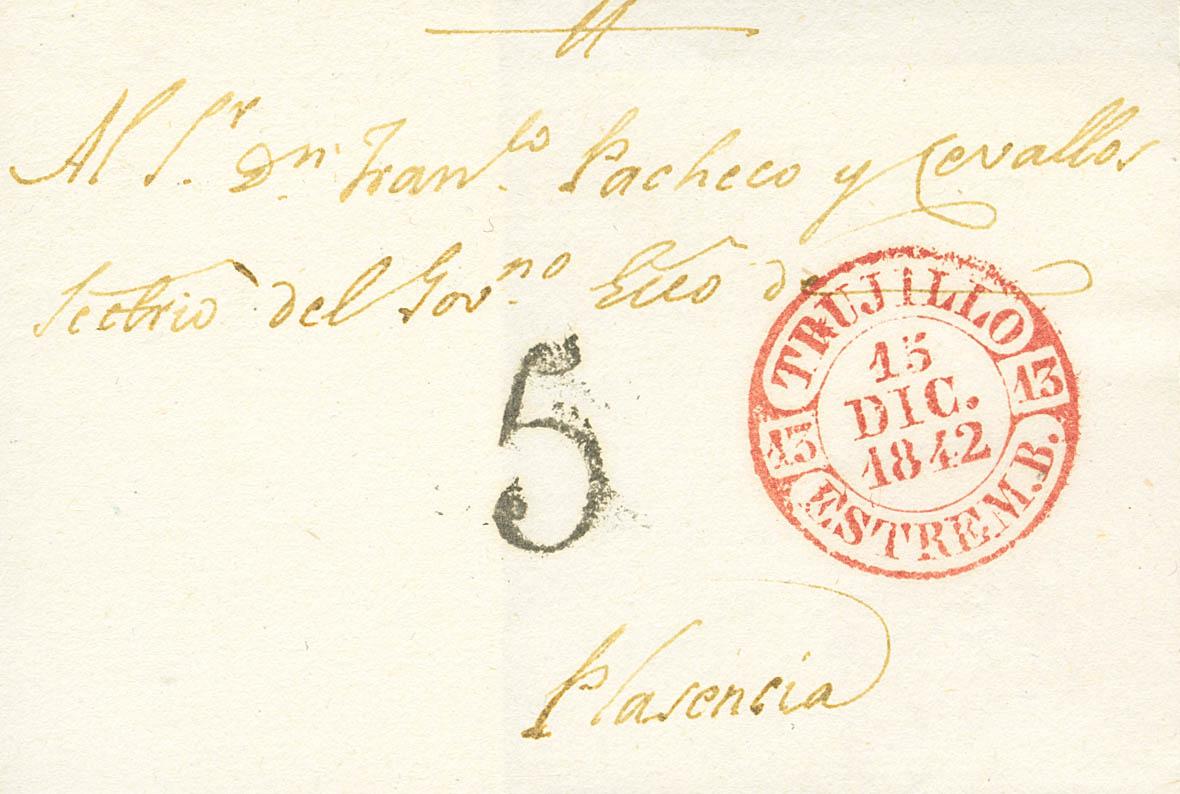 Al Sr. Dn. Franco. Pacheco y Cevallos
Sectrio del Govno. Ecco de
5
TRUJiLLO
13 13
15
DIC.
1842
ESTREM.B.
Plasencia